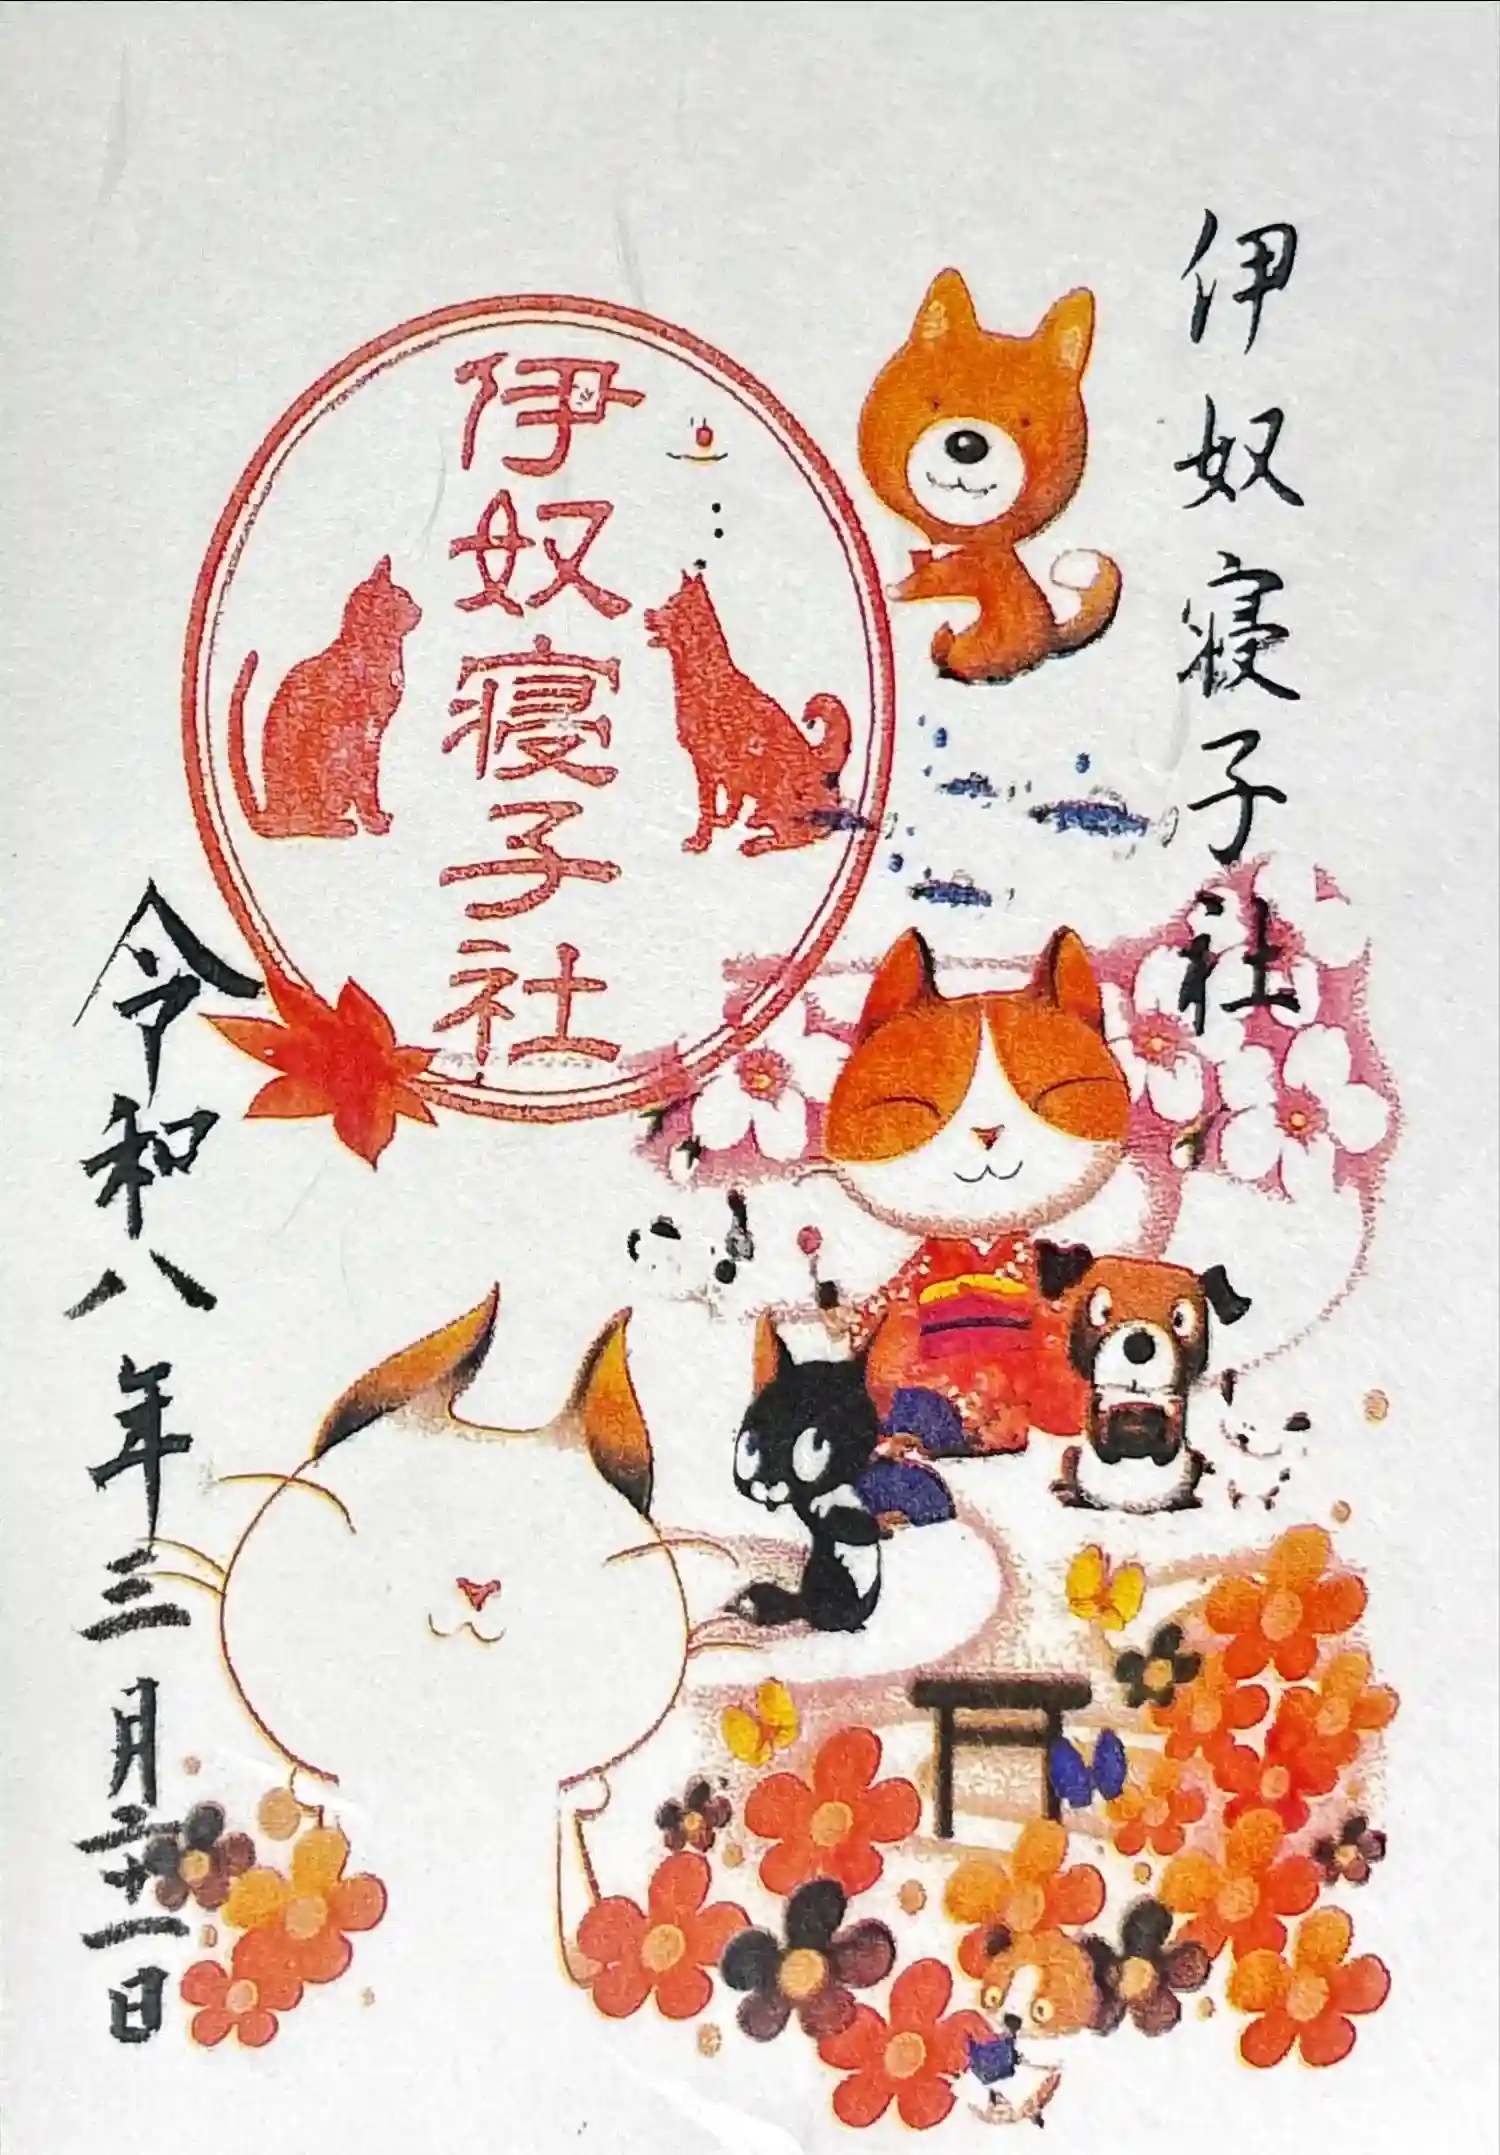 伊奴寝子社
伊奴寝子社
令和八年三月二十一日